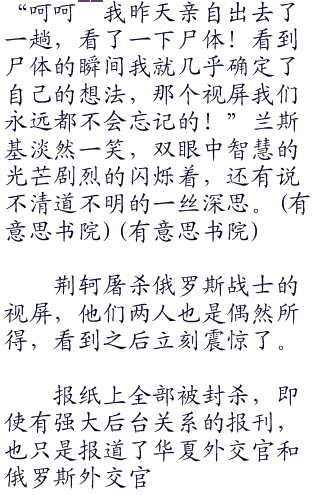 “呵呵——我昨天亲自出去了
一趟，看了一下尸体！看到
尸体的瞬间我就几乎确定了
自己的想法，那个视屏我们
永远都不会忘记的！”兰斯
基淡然一笑，双眼中智慧的
光芒剧烈的闪烁着，还有说
不清道不明的一丝深思。(有
意思书院)(有意思书院)
荆轲屠杀俄罗斯战士的
视屏，他们两人也是偶然所
得，看到之后立刻震惊了。
报纸上全部被封杀，即
使有强大后台关系的报刊，
也只是报道了华夏外交官和
俄罗斯外交官